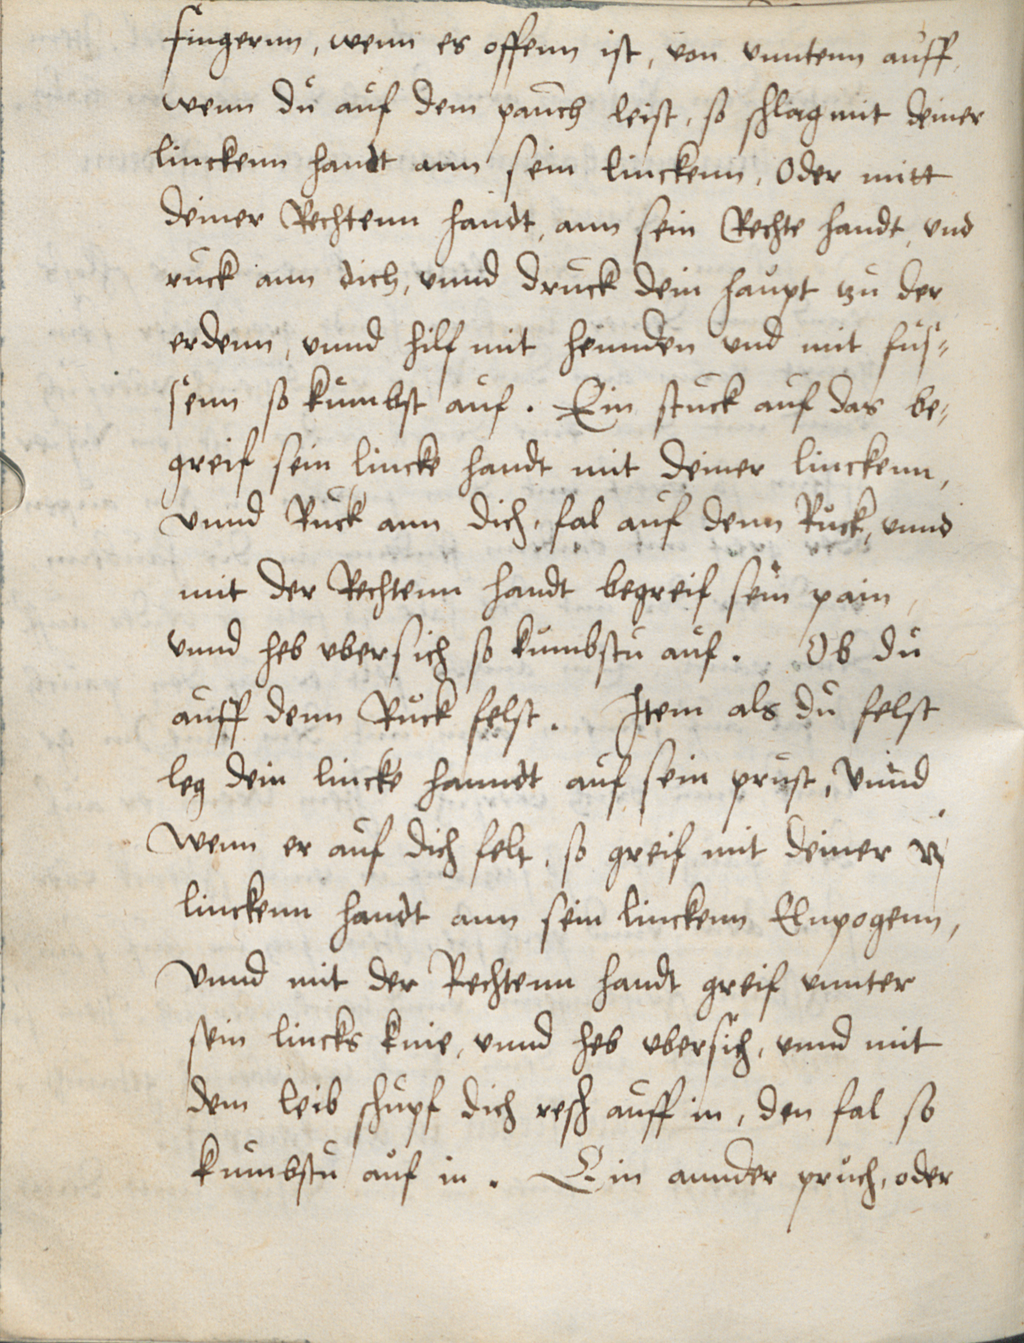 fingernn, wenn es offenn ist, von vnntenn auff,
wenn du auf dem pauch leist, so schlag mit deiner
linckenn handt ann sein linckenn, Oder mitt
deiner Rechtenn handt, ann sein Rechte handt, vnd
ruck ann dich, vnnd druck dein haupt zu der
erdenn, vnnd hilf mit hennden vnd mit fus-
senn so kumbst auf. Ein stuck auf das be-
greif sein lincke handt mit deiner linckenn,
vnnd Ruck ann dich, fal auf denn Ruck, vnnd
mit der Rechtenn handt begreif sein pain,
vnnd heb vbersich so kumbstu auf. Ob du
auff denn Ruck felst. Item als du felst
leg dein lincke hanndt auf sein prust, Vnnd
wenn er auf dich felt, so greif mit deiner
linckenn handt ann sein linckenn Elnpogenn,
Vnnd mit der Rechtenn handt greif vnnter
sein lincks knie, vnnd heb vbersich, vnnd mit
dem leib schupf dich resch auff in, den fal so
kumbstu auf in. Ein annder pruch, oder